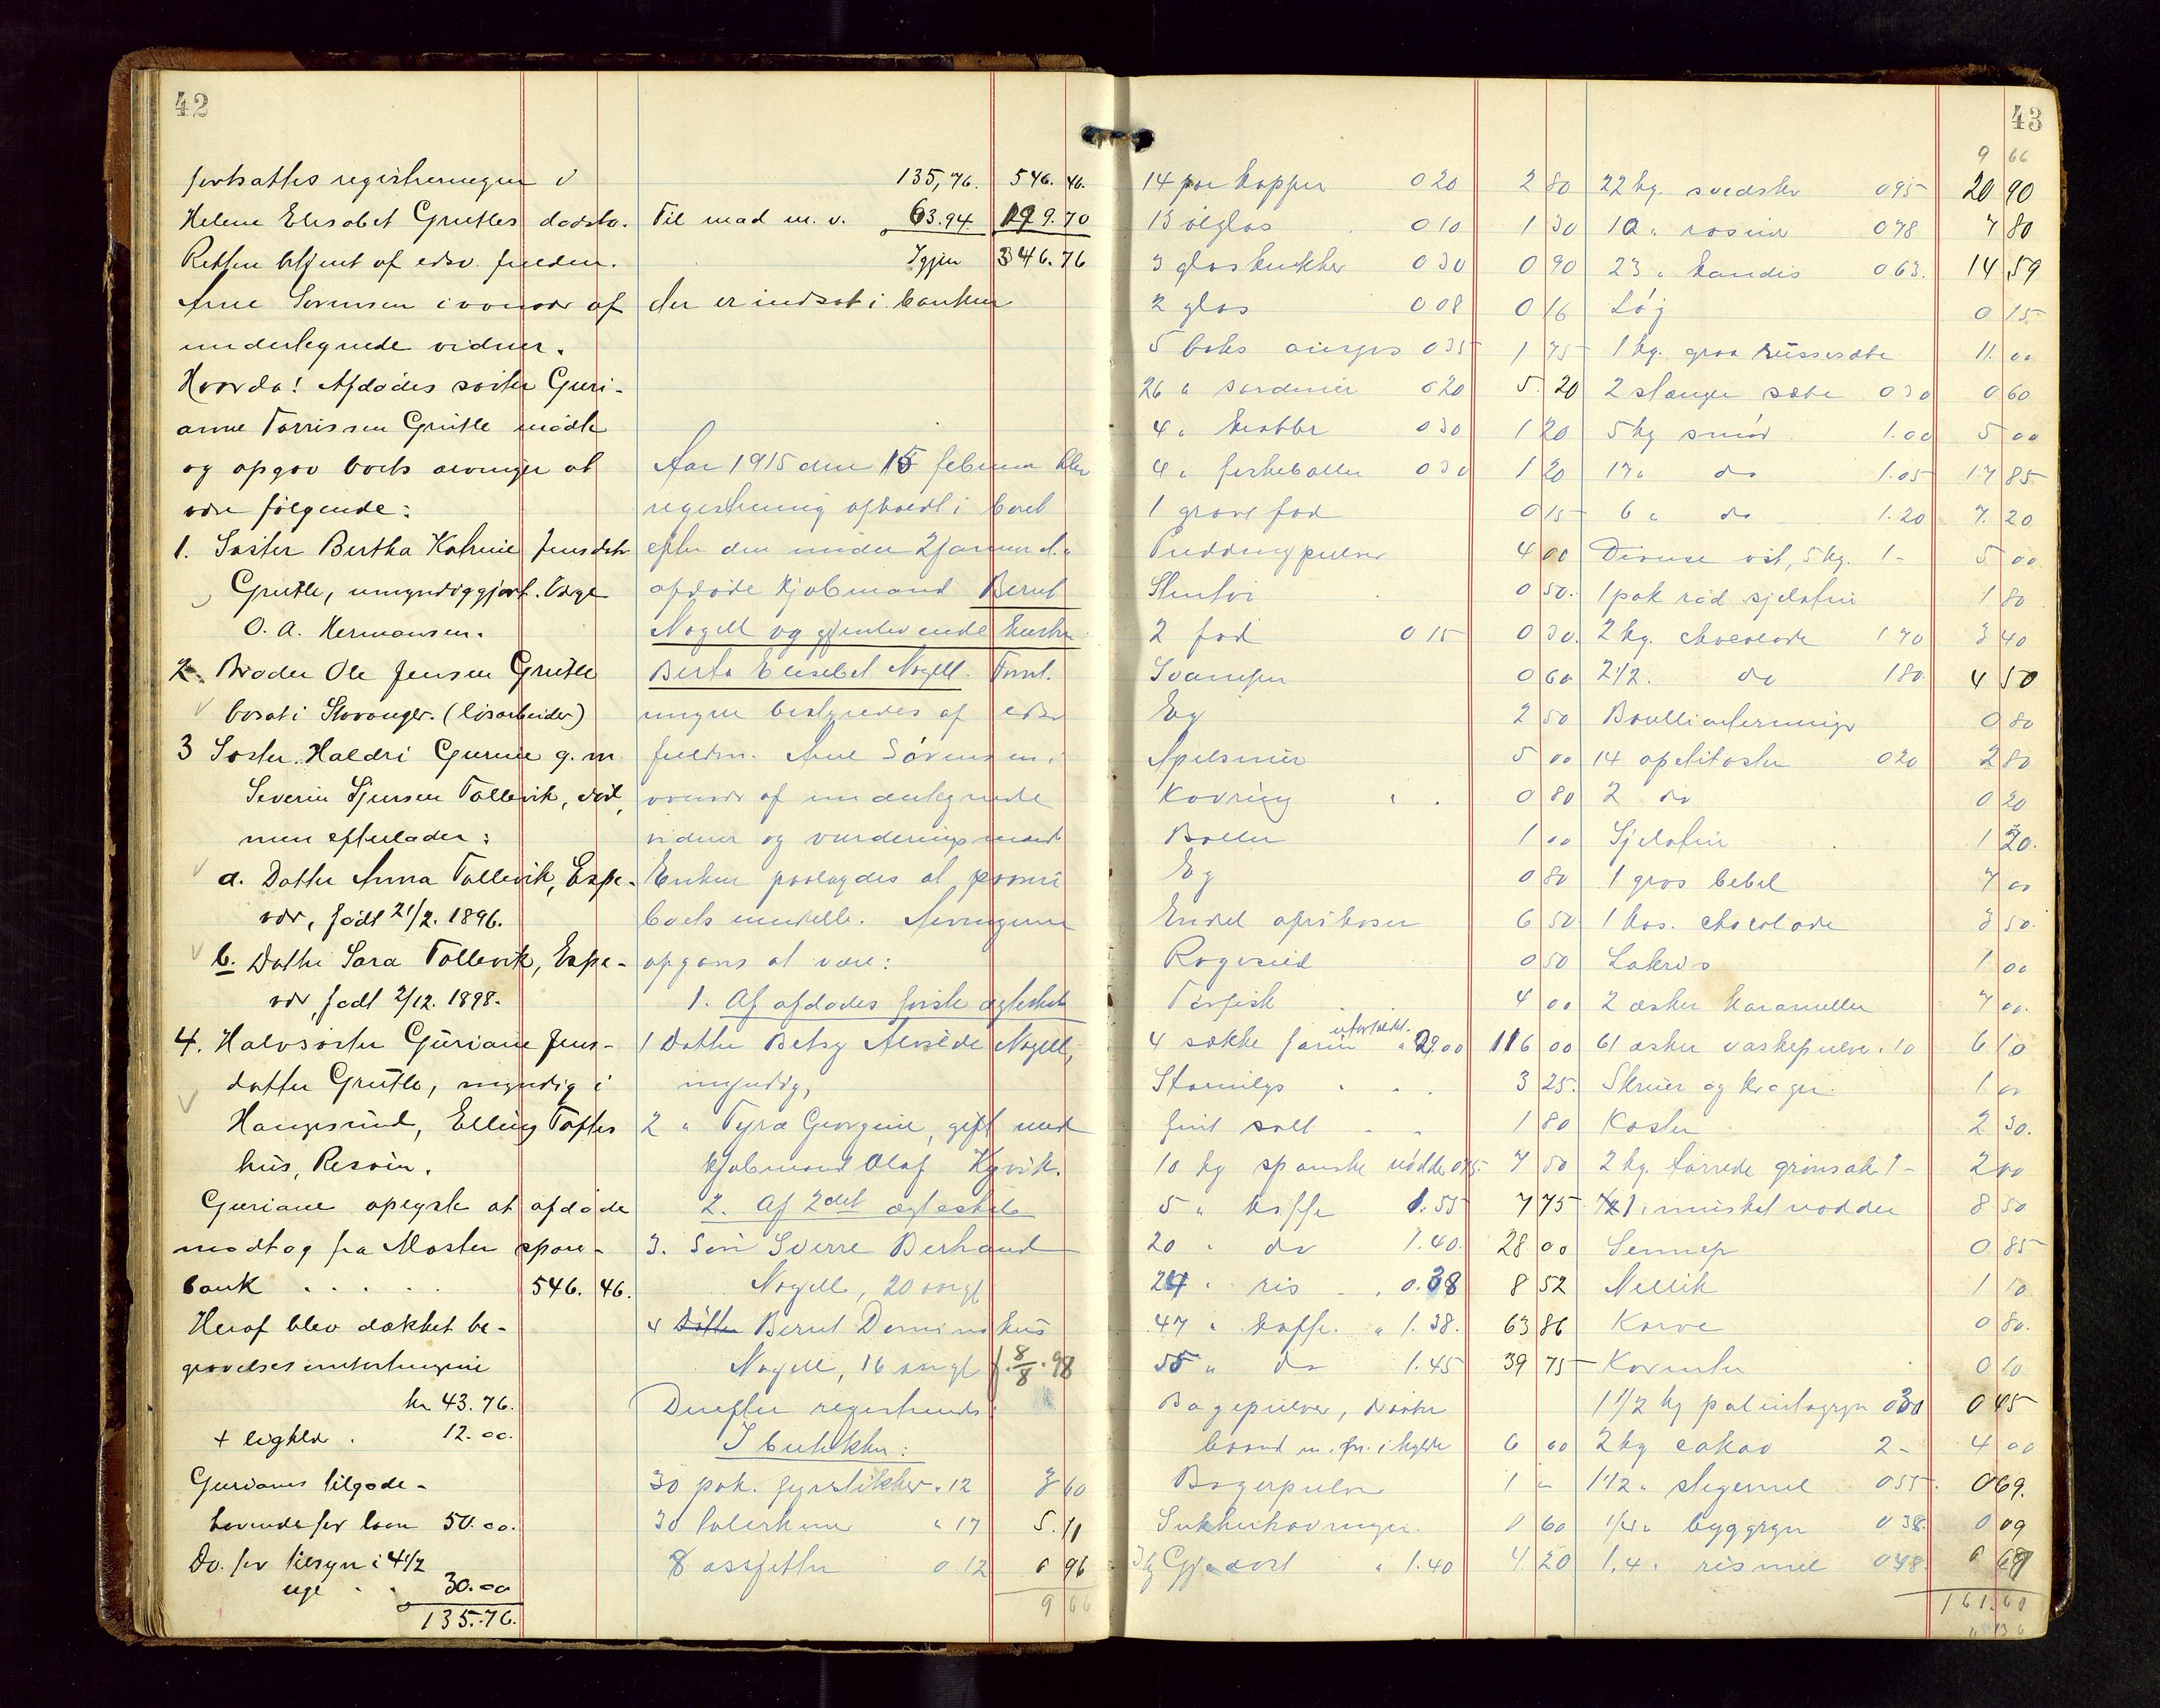 42
fortsattes registreringen i
Helene Elisabet Grutles dødsbo.
Retten betjent af edsv. fuldm.
Arne Sørensen i overvær af
undertegnede vidner.
Hvorda! Afdødes søster Guri-
anne Torrissen Grutle mødte
og opgav boets arvinger at
være følgende:
1. Søster Bertha Katrine Jensdtr
Grutle, umyndiggjort. Værge
O. A. Hermansen.
2. Broder Ole Jensen Grutle
bosat i Stavanger. (løsarbeider)
3 Søster Haldri Gurine g. m.
Severin Sjursen Tollevik, død,
men efterlader:
a. Datter Anna Tollevik, Espe-
vær, født 21/2. 1896.
b. Datter Sara Tollevik, Espe-
vær, født 2/12. 1898.
4. Halvsøster Guriane Jens-
datter Grutle, myndig i
Haugesund, Elling Toftes
hus, Risøen.
Guriane oplyste at afdøde
modtog fra Moster spare-
bank . . . . . 546. 46.
Heraf blev dækket be-
gravelsesomkostningerne
kr 43.76.
+ ligklær . 12.00.
Gurianes tilgode-
havende for løn 50.00.
Do. for tilsyn i 4 1/2
uge . . 30.00
135.76.
135,76. 546. 46.
Til mad m. v. 63.94 199.70
Igjen 346.76
der er indsat i banken
Aar 1915 den 15 februar blev
registrering afholdt i boet
efter den under 2 januar d.a.
afdøde kjøbmand Bernt
Nagell og gjenlevende hustru
Berta Elisebet Nagell. Forret-
ningen bestyredes af edsv
fuldm. Arne Sørensen i
overvær af undertegnede
vidner og vurderingsmænd
Enken paalagdes at fremvise
boets midler. Arvingerne
opgaves at være:
1. Af afdødes første ægteskab
1 Datter Betsy Alvilde Nagell,
myndig,
2 " Tyra Georgine, gift med
kjøbmand Olaf Kyvik.
2. Af 2det ægteskab
3. Søn Sverre Berhard
Nagell, 20 aar gl
4 Datter Bernt Dominikus
Nagell, 16 aar gl f. 8/8. 98
Derefter registreredes:
I butikken:
30 pak. fyrstikker " 12 3 60
30 talerkener " 17 5. 11
8 assjetter 0.12 0 96
9 66
43
14 par kopper 0 20 2 80
13 ølglas 0 10 1 30
3 glaskrukker 0 30 0 90
2 glas 0 08 0 16
5 boks 0 35 1 75
26 " sardiner 0 20 5. 20
4 " krabber 0 30 1 20
4 " fiskeboller 0 30 1 20
1 fad 0 15
Puddingpulver 4 00
Stentøi 0 50.
2 fad 0 15 0 30.
Svamper 0 60
Eg 2 50
Apelsiner 5 00
Kavring 0 80
Boller 1 00
Eg 0 80
Endel aprikoser 6 50
Rogesild 0 50
Tørfisk 4 00
4 sække farin ufortoldet " 29.00 116 00
Stømilgs 3 25.
fint salt 1 80
10 kg spanske nødder 075 7 50
5 " kaffe 1.55 7 75
20 " do 1.40. 28 00
24 " ris . . 0.38 8 52
47 " kaffe. " 1.38. 63 86
55 " do 1.45 39 75
Bagepulver, diverse
i hylde 6 00
Bagerpulver 1 "
Sukkerkavringer. 0 60
3 kg Gjedost " 1.40 4 20
9 66
22 kg. svedsker 0 95 20 90
10 " rosiner 0 78 7 80
23 " kandis 0 63. 14 59
Løg 0 15
1 kg. grøn russesæbe 11. 00
2 stænger sæbe 0 30 0 60
5 kg smør 1.00 5 00
17 " do 1.05 17 85
6 " do 1.20 7. 20
Diverse ost, 5 kg. 1- 5 00
1 pak rød sjelatin 1 80
2 kg. chocolade 1 70 3 40
2 1/2. do 1 80. 4 50
Boullionterninger 0 80
14 apetitoster 0 20 2 80
2 do 0 20
Sjelatin 1 20.
1 gros bebel 7 00
1 kas. chocolade 3 50.
Lakris 1 00
2 æsker karameller 7 00.
61 æsker vaskepulver .10 6 10
Skruer og kroger. 1 00
Koster 2 30.
2 kg. tørrede grønsaker 1- 2 00
1/2 muskatnødder 8 50
Sennep 0 85
Nellik 1 10
Karve 0 80.
Korinter 0 10
1 1/2 kg palintagryn 030 0 45
2 kg cakao 2 - 4 00
1 1/2 " stegemel 0 55. 0 69.
1/4 " byggryn 0 38. 0 09
1.4 " rismel 0 48. 0 67
161.60